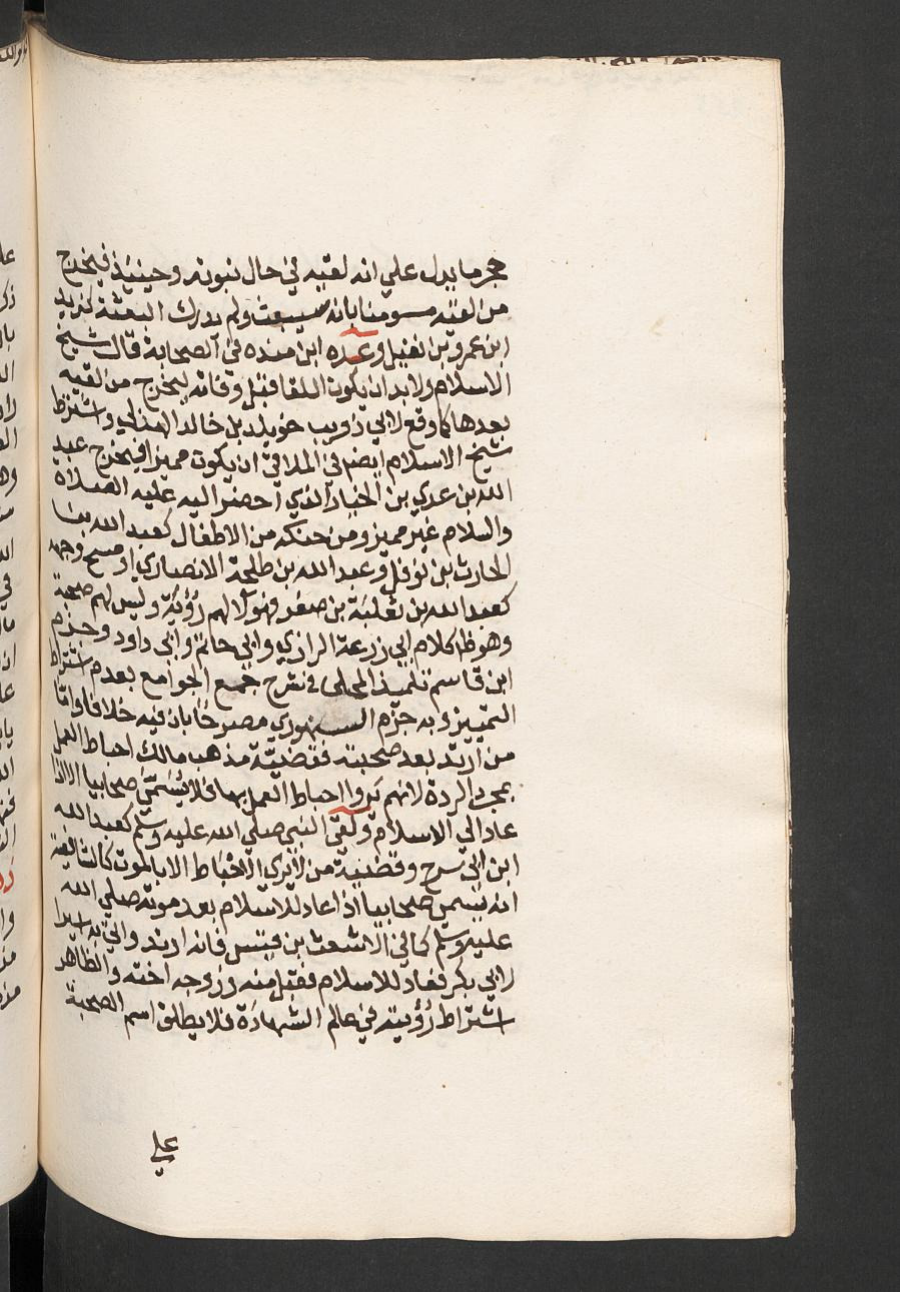 حجر ما يدل علي انه لقيه في حال نبوته وحينيذ فيخرج
من لقيه مومنا بانه سيبعث ولم يدرك البعثة كزيد
ابن عمرو بن نفيل وعده ابن منده في الصحابة قال شيخ
الاسلام ولابد ان يكون اللقا قبل وفاته ليخرج من لقيه
بعدها كما وقع لابي ذويب خويلد بن خالد الهذلي واشترط
شيخ الاسلام ايضا في الملاقي ان يكون مميزا فيخرج عبيد
الله بن عدي بن الخيار الذي احضر اليه عليه الصلاة
والسلام غير مميز ومن حنكه من الاطفال كعبد الله بن
الحارث بن نوفل وعبد الله بن طلحة الانصاري او مسح وجهه
كعبد الله بن ثعلبة بن صعر فهولا لهم رؤية وليس لهم صحبة
وهو ظ كلام ابي زرعة الرازي وابي حاتم وابي داود وجزم
ابن قاسم تلميذ المحلي في شرح جمع الجوامع بعدم اشتراط
التمييز وبه جزم السنهوري مصرحا بان فيه خلافا واما
من ارتد بعد صحبته فقضية مذهب مالك احباط العمل
بمجرد الردة لانهم يروا احباط العمل بها فلا يسمي صحابيا الا اذا
عاد الي الاسلام ولقي النبي صلي الله عليه وسلم كعبد الله
ابن ابي سرح وقضية من لا يري الاحباط الا بالموت كالشافعية
انه يسمي صحابيا اذا عاد للاسلام بعد موته صلي الله
عليه وسلم كما في الاشعث بن قيس فانه ارتد واتي به اسيرا
لابي بكر فعاد للاسلام فقبل منه وزوجه اخته والظاهر
اشتراط رؤيته في عالم الشهادة فلا يطلق اسم الصحبة
علي